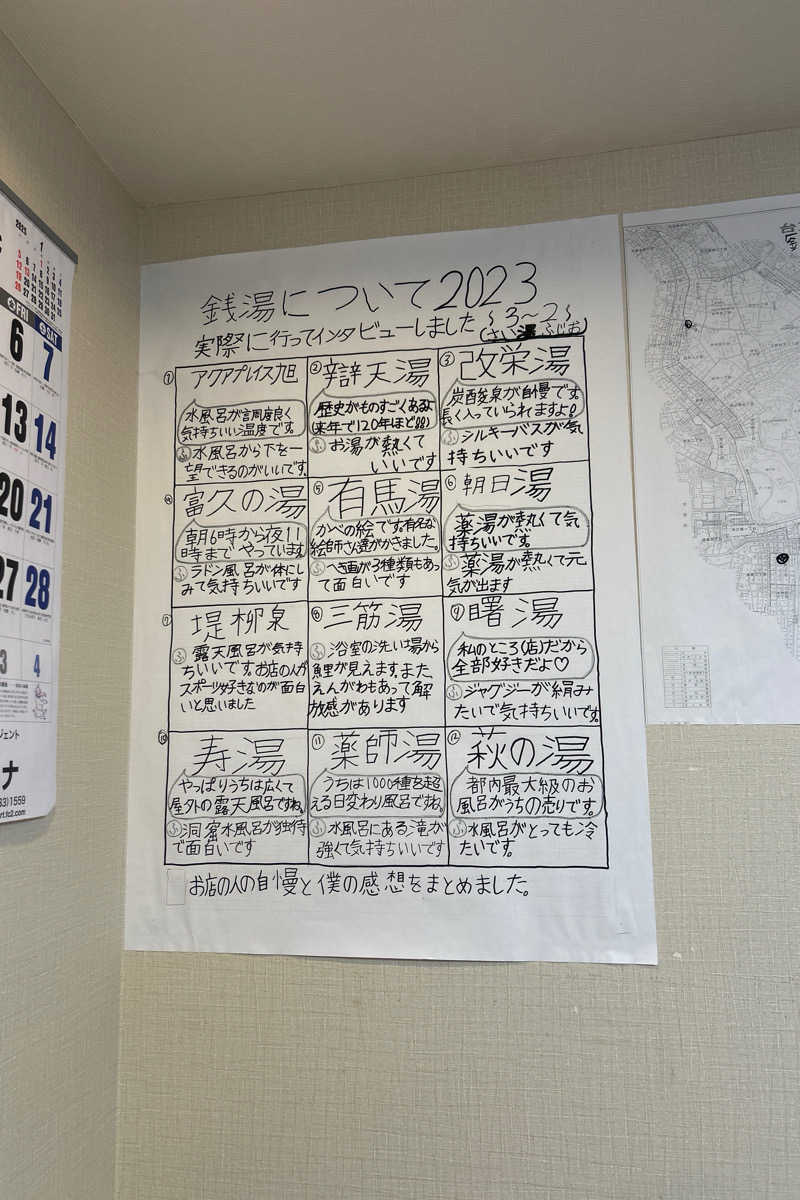 銭湯について2023
実際に行ってインタビューしました
3～2
① アクアプレイス旭
水風呂が調度良く
気持ちいい温度です。
ふ 水風呂から下を一
望できるのがいいです。
② 辯天湯
歴史がものすごくあるよ
(来年で120年ほど!!)
ふ お湯が熱くて
いいです
③ 改栄湯
炭酸泉が自慢です。
長く入っていられますよ!
ふ シルキーバスが気
持ちいいです
④ 富久の湯
朝6時から夜11
時までやっています
ふ ラドン風呂が体にし
みて気持ちいいです
⑤ 有馬湯
かべの絵です。有名な
絵師さん達がかきました。
ふ へき画が3種類もあっ
て面白いです
⑥ 朝日湯
薬湯が熱くて気
持ちいいです。
ふ 薬湯が熱くて元
気が出ます
⑦ 堤柳泉
ふ 露天風呂が気持
ちいいです。お店の人が
スポーツ好きなのが面白
いと思いました
⑧ 三筋湯
ふ 浴室の洗い場から
鯉が見えます。また
えんがわもあって解
放感があります
⑨ 曙湯
私のところ(店)だから
全部好きだよ♡
ふ ジャグジーが絹み
たいで気持ちいいです。
⑩ 寿湯
やっぱりうちは広くて
屋外の露天風呂ですね。
ふ 洞窟水風呂が独特
で面白いです
⑪ 薬師湯
うちは1000種を超
える日変わり風呂ですね。
ふ 水風呂にある滝が
強くて気持ちいいです
⑫ 萩の湯
都内最大級のお
風呂がうちの売りです。
ふ 水風呂がとっても冷
たいです。
お店の人の自慢と僕の感想をまとめました。
2025 1
FRI SAT
6 7
13 14
20 21
27 28
3 4
ジェント
ナ
1559